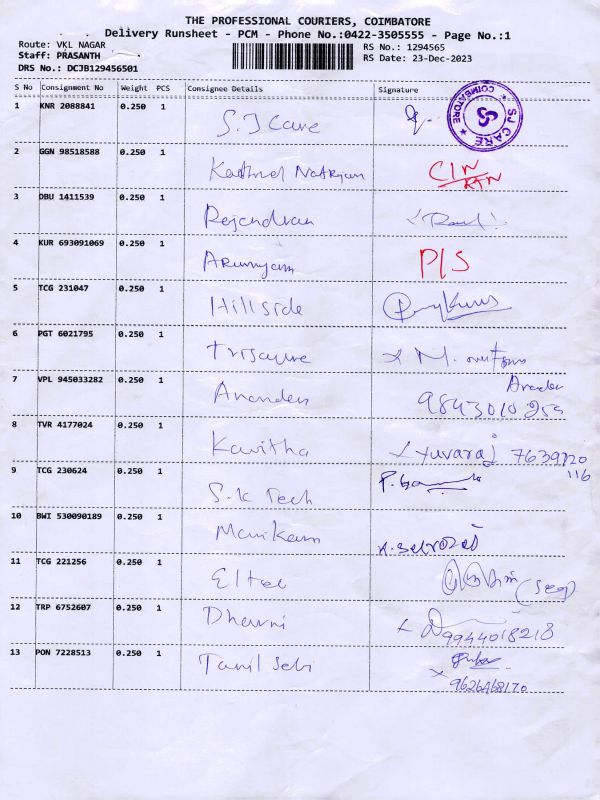 THE PROFESSIONAL COURIERS, COIMBATORE
Delivery Runsheet - PCM - Phone No.:0422-3505555 - Page No.:1
Route: VKL NAGAR
Staff: PRASANTH
DRS No.: DCJB129456501
RS No.: 1294565
RS Date: 23-Dec-2023
S No Consignment No Weight PCS Consignee Details Signature
1 KNR 2088841 0.250 1 S.J Care
SJ CARE * COIMBATORE *
2 GGN 98518588 0.250 1
3 DBU 1411539 0.250 1 Rajendran
4 KUR 693091069 0.250 1 P/S
5 TCG 231047 0.250 1 Hillside
6 PGT 6021795 0.250 1
7 VPL 945033282 0.250 1
8 TVR 4177024 0.250 1 Kavitha Yuvaraj
9 TCG 230624 0.250 1 S.K Tech
10 BWI 530090189 0.250 1
11 TCG 221256 0.250 1
12 TRP 6752607 0.250 1 Dharni 9944018218
13 PON 7228513 0.250 1